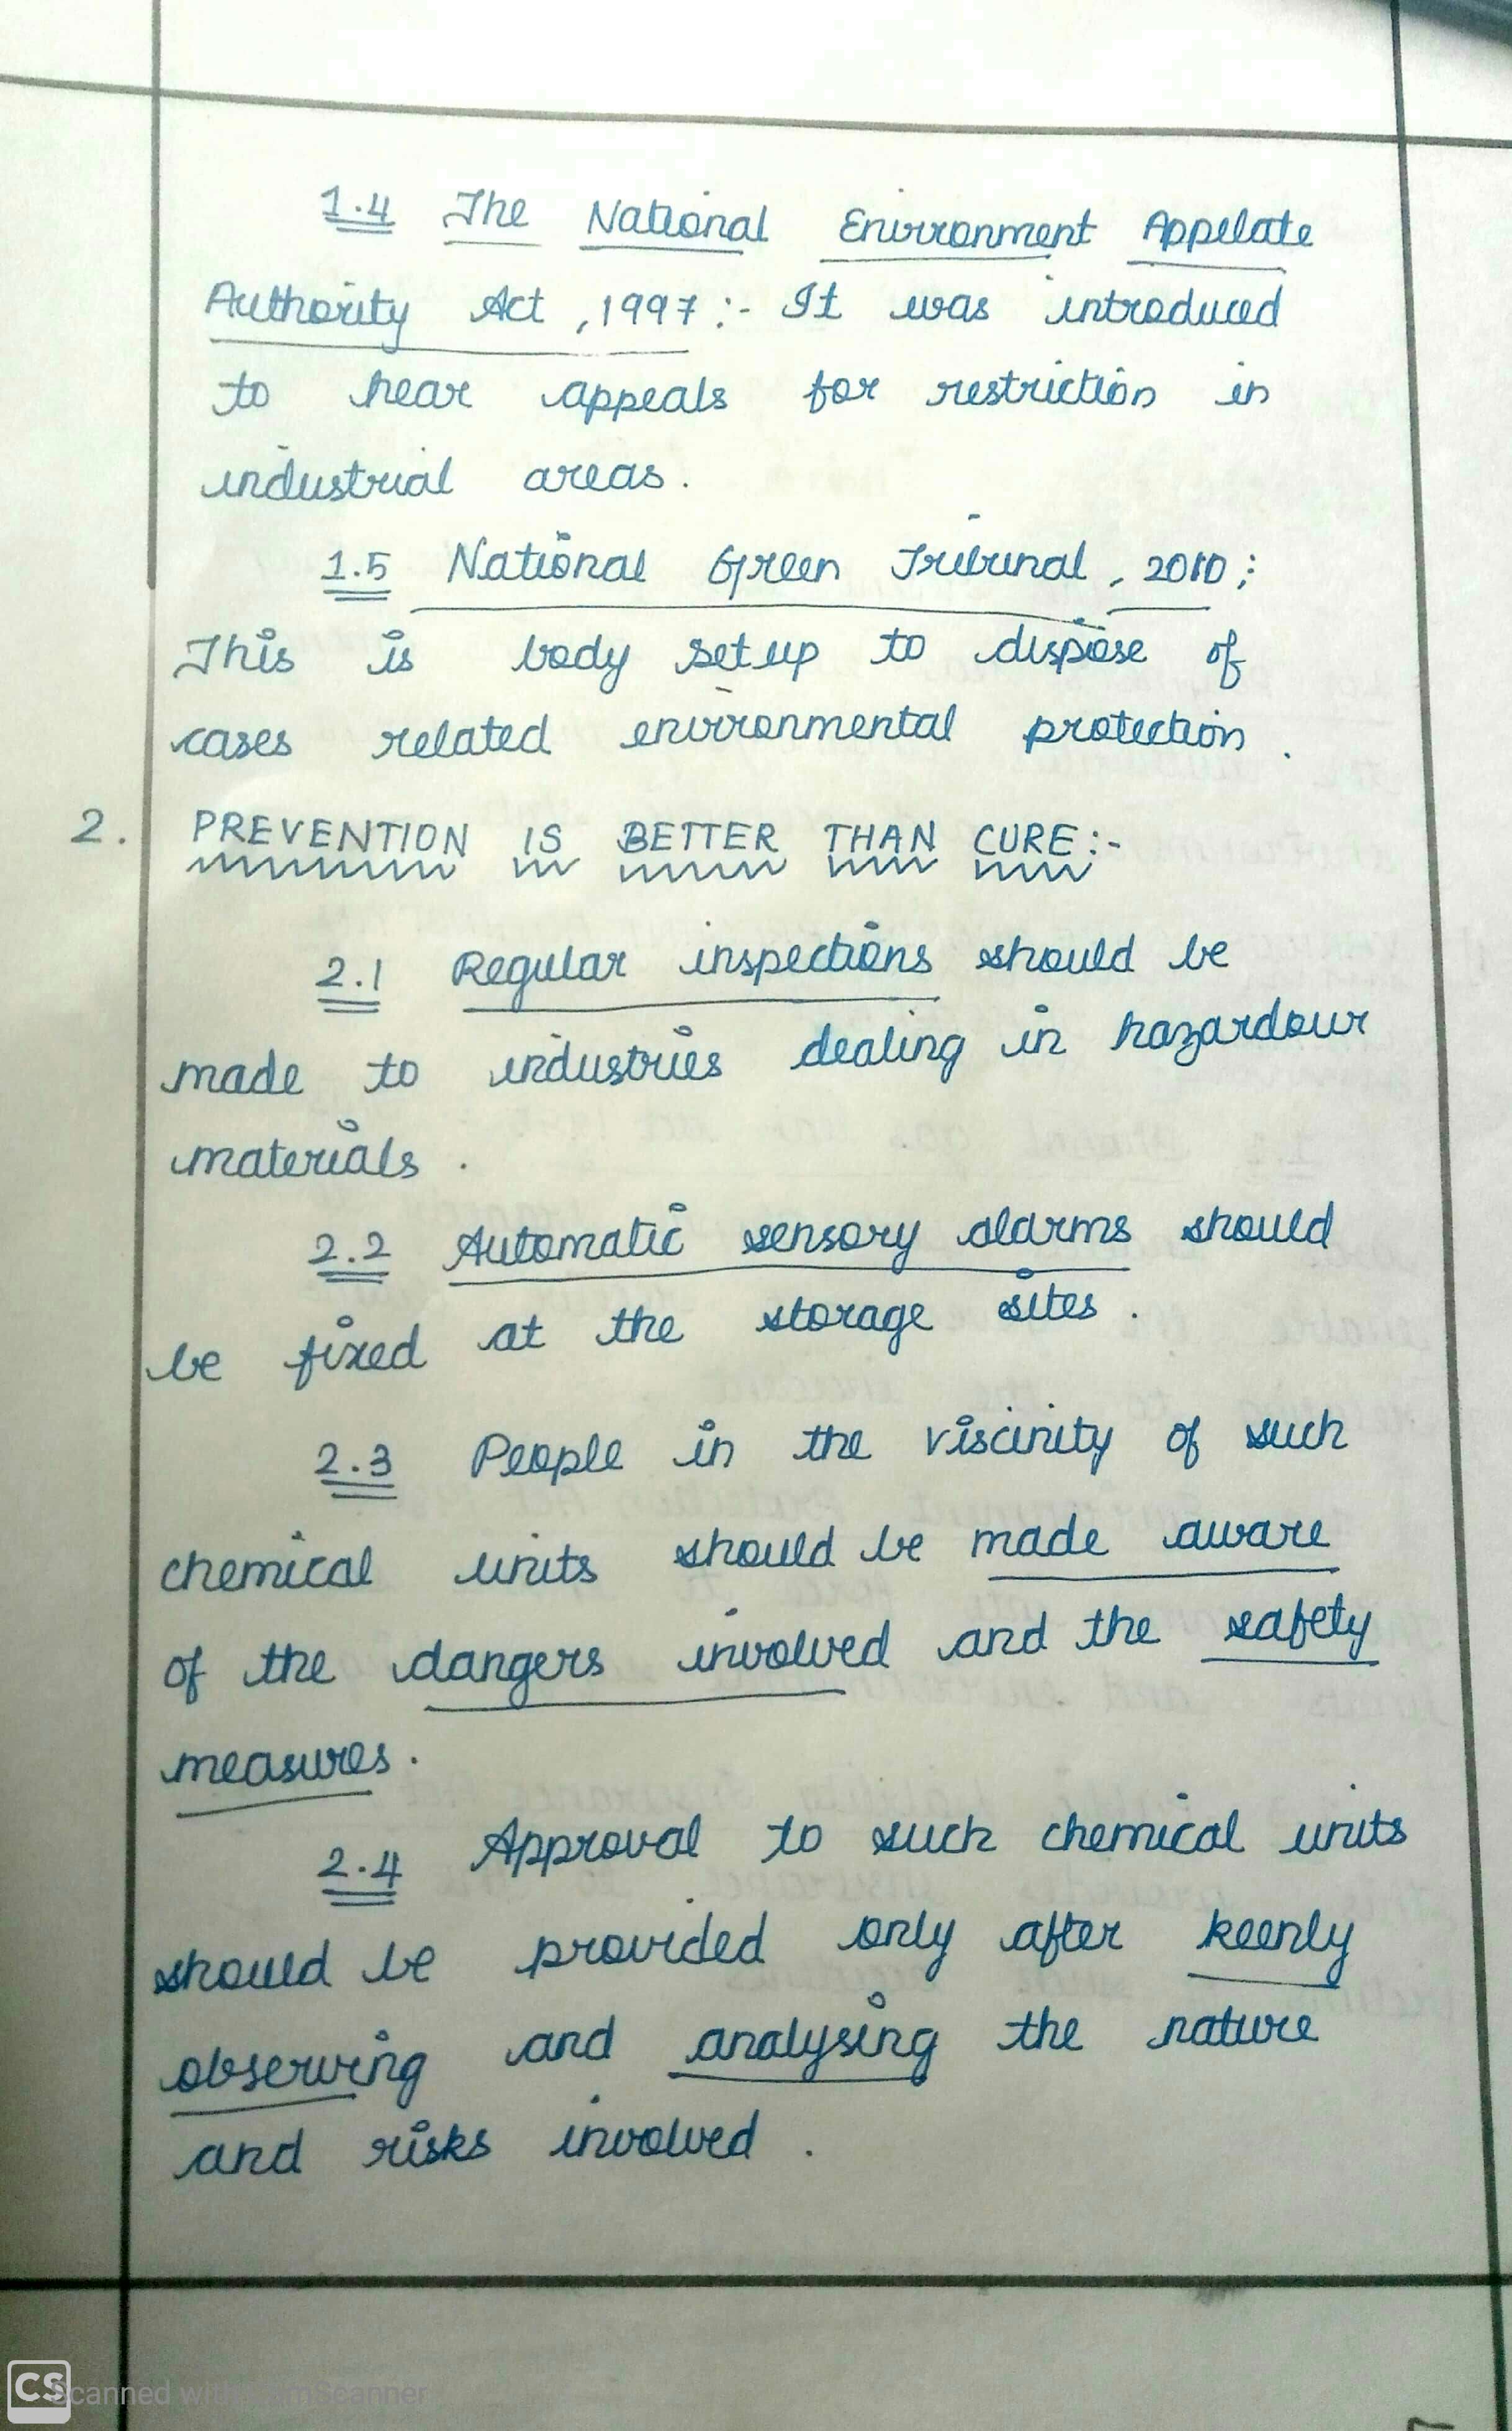 1.4 The National Environment Appelate
Authority Act, 1997:- It was introduced
to hear appeals for restriction in
industrial areas.
1.5 National Green Tribunal, 2010:
This is body setup to dispose of
cases related environmental protection.
2. PREVENTION IS BETTER THAN CURE:-
2.1 Regular inspections should be
made to industries dealing in hazardour
materials.
2.2 Automatic sensory alarms should
be fixed at the storage sites.
2.3 People in the viscinity of such
chemical units should be made aware
of the dangers involved and the safety
measures.
2.4 Approval to such chemical units
should be provided only after keenly
observing and analysing the nature
and risks involved.
CS Scanned with CamScanner